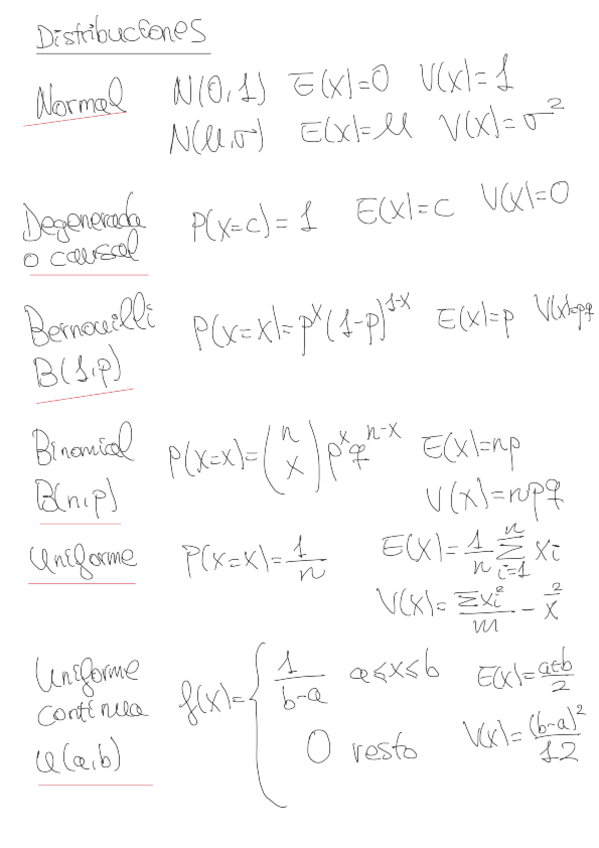 Distribuciones
Normal N(0,1) E(X)=0 V(X)=1
N(μ,σ) E(X)=μ V(X)=σ²
Degenerada o causal P(X=c)=1 E(X)=c V(X)=0
Bernouilli B(1,p) P(X=x)=pˣ(1-p)¹⁻ˣ E(X)=p V(X)=pq
Binomial B(n,p) P(X=x)=(n x) pˣqⁿ⁻ˣ E(X)=np
V(X)=npq
Uniforme P(X=x)=1/n E(X)=1/n Σᵢ₌₁ⁿ xi
V(X)=Σxi²/n - x̄²
Uniforme continua U(a,b) f(x)={ 1/(b-a) a≤x≤b E(X)=(a+b)/2
0 resto V(X)=(b-a)²/12